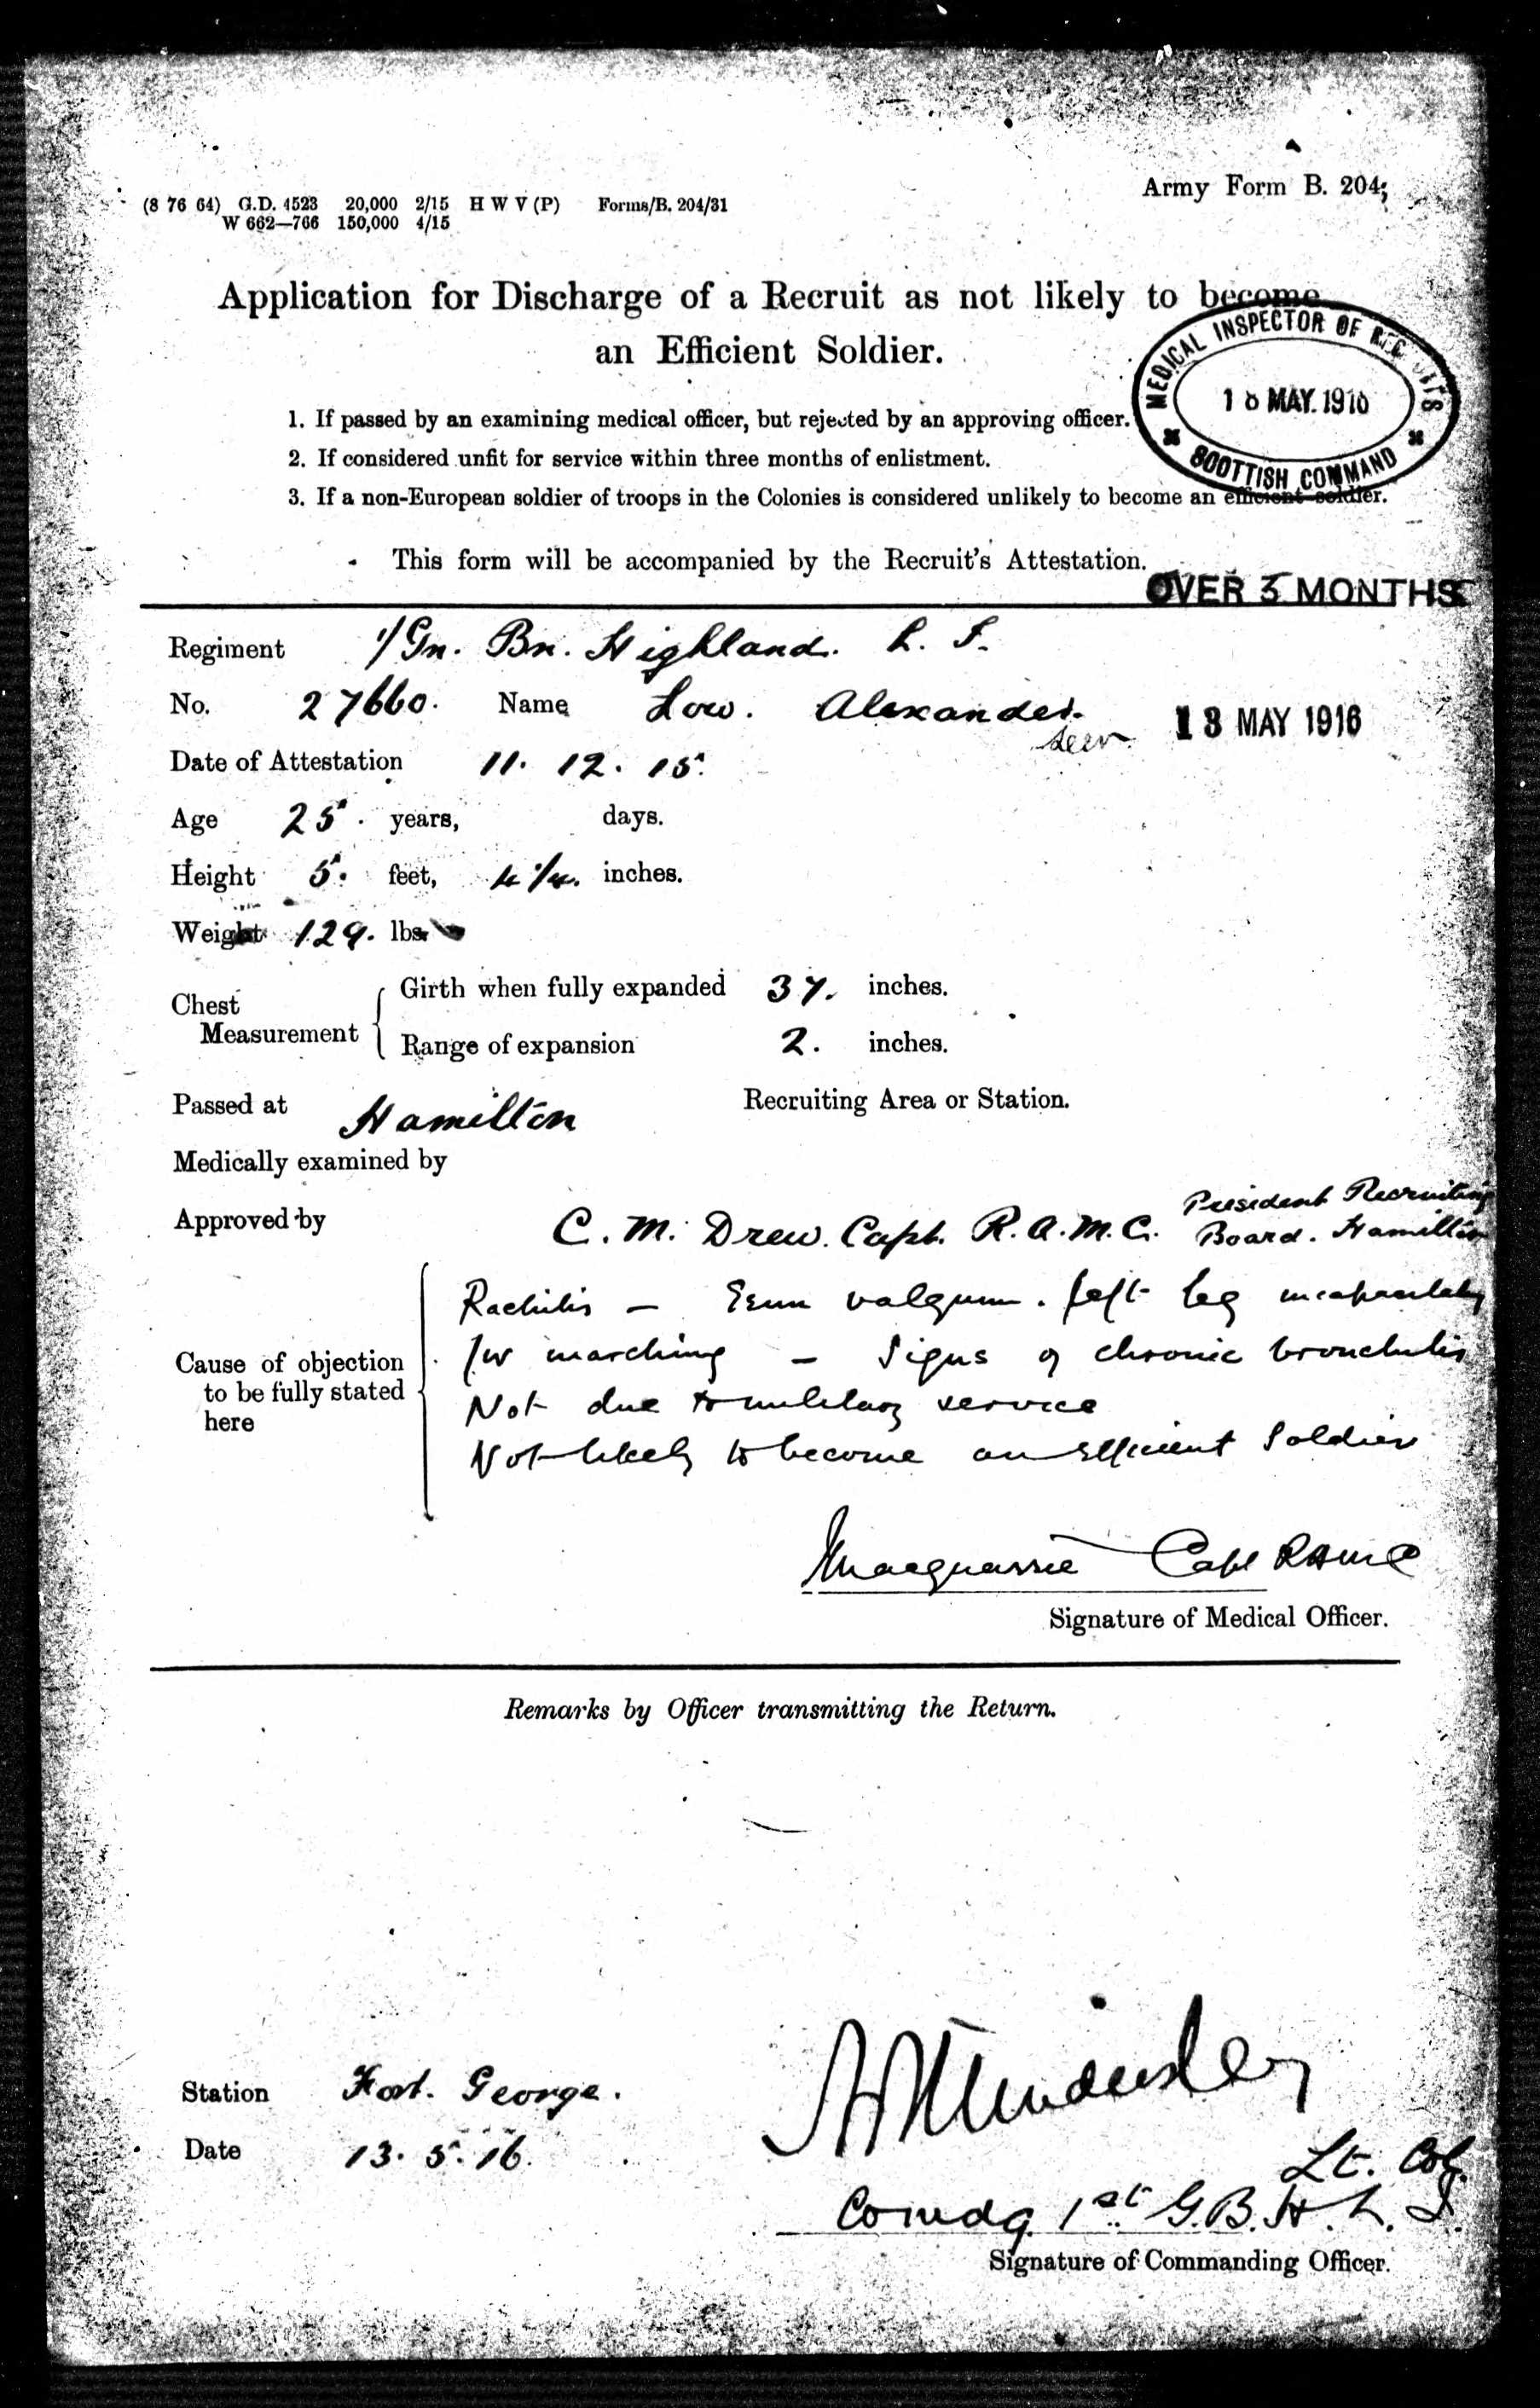 Army Form B. 204;
(8 76 64) G.D. 4523 20,000 2/15 H W V (P) Forms/B. 204/31
W 662—766 150,000 4/15
Application for Discharge of a Recruit as not likely to become
an Efficient Soldier.
MEDICAL INSPECTOR OF RECRUITS
MAY. 1916
SCOTTISH COMMAND
1. If passed by an examining medical officer, but rejected by an approving officer.
2. If considered unfit for service within three months of enlistment.
3. If a non-European soldier of troops in the Colonies is considered unlikely to become an efficient soldier.
This form will be accompanied by the Recruit's Attestation.
OVER 3 MONTHS
Regiment 1/Gn. Bn. Highland. L. I.
No. 27660. Name Low. Alexander.
seen 13 MAY 1916
Date of Attestation 11. 12. 15.
Age 25. years, days.
Height 5. feet, 4 1/4. inches.
Weight 129. lbs.
Chest Measurement
Girth when fully expanded 37. inches.
Range of expansion 2. inches.
Passed at Hamilton Recruiting Area or Station.
Medically examined by
Approved by C. M. Drew. Capt. R. A. M. C. President Recruiting
Board. Hamilton
Cause of objection
to be fully stated
here
Rachitis — Genu valgum. left leg incapacitating
for marching — Signs of chronic bronchitis
Not due to military service
Not likely to become an efficient Soldier
Macquarrie Capt RAMC
Signature of Medical Officer.
Remarks by Officer transmitting the Return.
Station Fort. George.
Date 13. 5. 16.
Lt. Col.
Comdg. 1st G. B. H. L. I.
Signature of Commanding Officer.